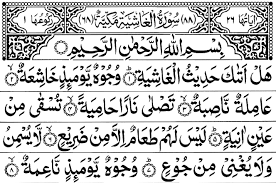 اٰیاتها ٢٦ (٨٨) سُوْرَةُ الْغَاشِيَةِ مَكِّيَّةٌ (٦٨) رکوعها ١
بِسْمِ اللّٰهِ الرَّحْمٰنِ الرَّحِيْمِ
هَلْ اَتٰىكَ حَدِيْثُ الْغَاشِيَةِ ۝١ وُجُوْهٌ يَّوْمَىِٕذٍ خَاشِعَةٌ ۝٢
عَامِلَةٌ نَّاصِبَةٌ ۝٣ تَصْلٰى نَارًا حَامِيَةً ۝٤ تُسْقٰى مِنْ
عَيْنٍ اٰنِيَةٍ ۝٥ لَيْسَ لَهُمْ طَعَامٌ اِلَّا مِنْ ضَرِيْعٍ ۝٦ لَّا يُسْمِنُ
وَلَا يُغْنِيْ مِنْ جُوْعٍ ۝٧ وُجُوْهٌ يَّوْمَىِٕذٍ نَّاعِمَةٌ ۝٨